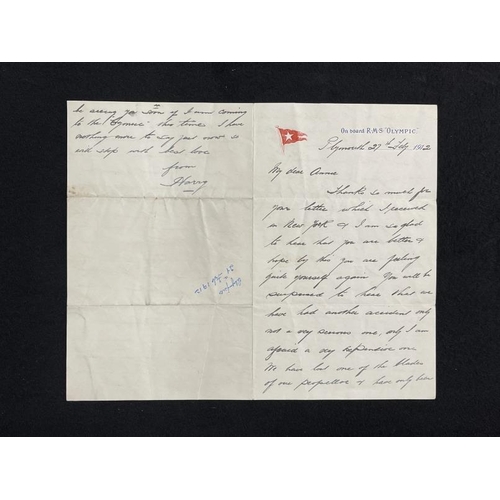 On board R.M.S. "OLYMPIC".
Plymouth 27th Feb 1912
My dear Anna
Thanks so much for
your letter which I received
in New York & I am so glad
to hear that you are better &
hope by this you are feeling
quite yourself again. You will be
surprised to hear that we
have had another accident only
not a very serious one, only I am
afraid a very expensive one
We have lost one of the blades
of our propellor & have only been
be seeing you soon if I am coming
to the this time I have
nothing more to say just now so
will stop with best love
from
Harry